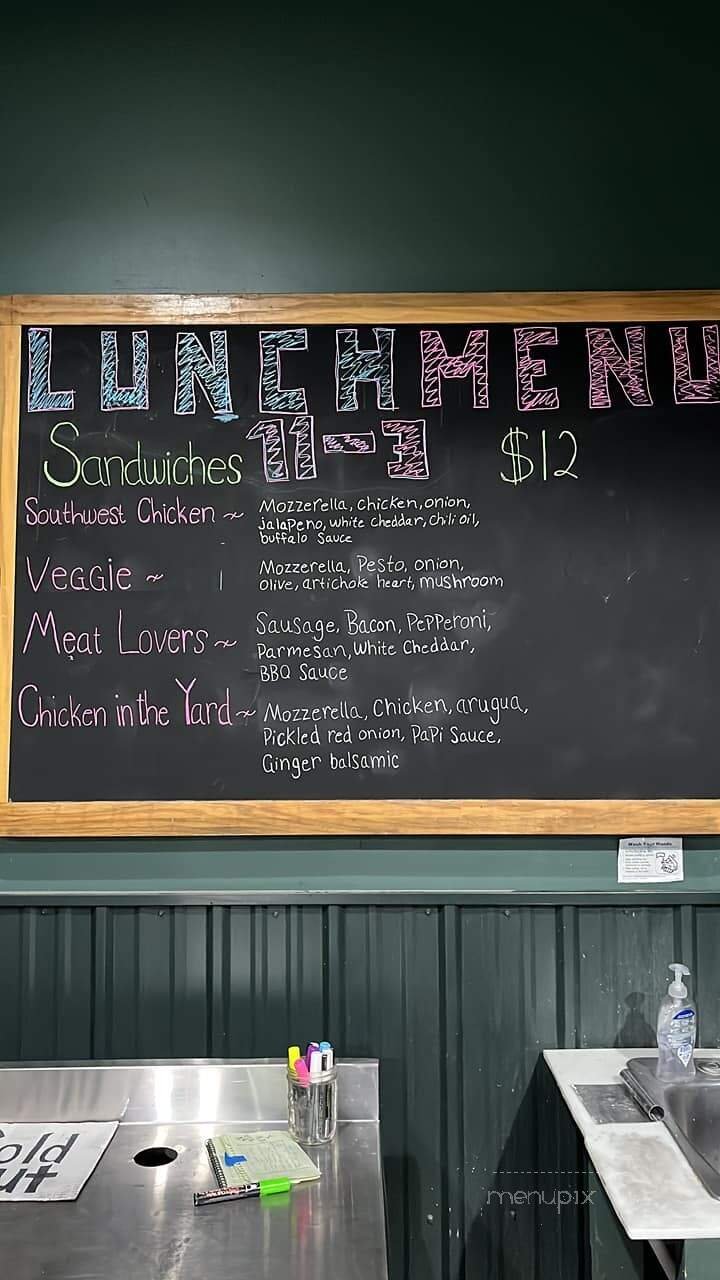 LUNCH MENU
Sandwiches 11-3 $12
Southwest Chicken ~ Mozzerella, chicken, onion,
jalapeno, white cheddar, chili oil,
buffalo sauce
Veggie ~ Mozzerella, Pesto, onion,
olive, artichoke heart, mushroom
Meat Lovers ~ Sausage, Bacon, Pepperoni,
Parmesan, White Cheddar,
BBQ Sauce
Chicken in the Yard ~ Mozzerella, Chicken, arugua,
Pickled red onion, PaPi Sauce,
Ginger balsamic
Wash Your Hands
old
ut
menupix